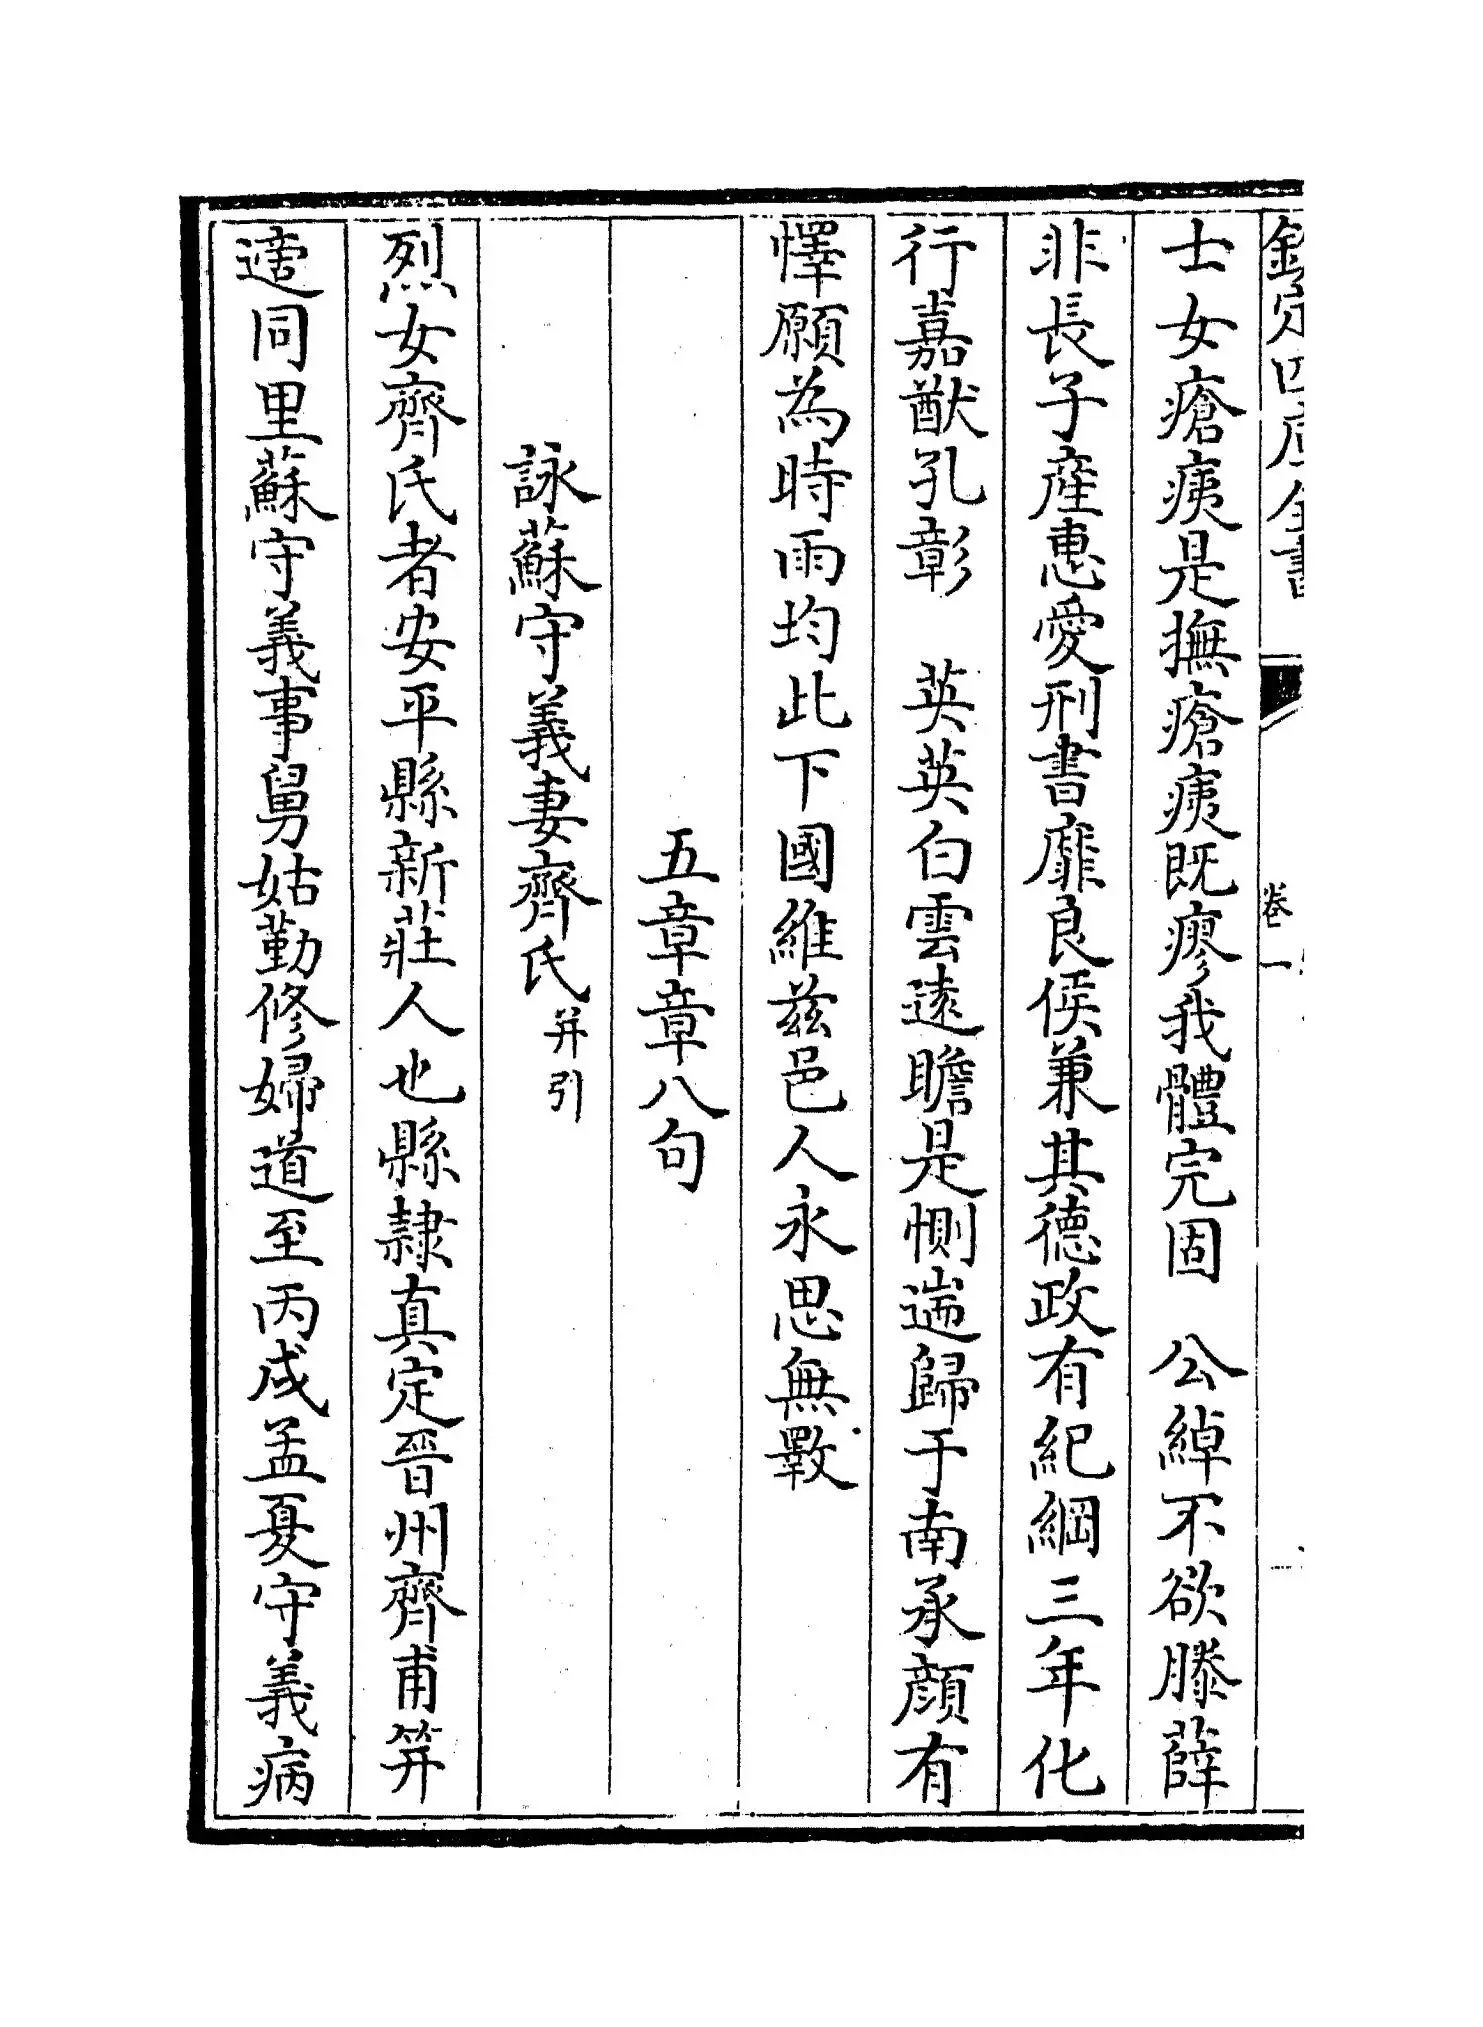 欽定四庫全書
卷一
士女瘡痍是撫瘡痍既瘳我體完固　公綽不欲滕薛
非長子產惠愛刑書靡良侯兼其德政有紀綱三年化
行嘉猷孔彰　英英白雲遠瞻是惻遄歸于南承顔有
懌願為時雨均此下國維兹邑人永思無斁
五章章八句
詠蘇守義妻齊氏并引
烈女齊氏者安平縣新莊人也縣隸真定晉州齊甫笄
適同里蘇守義事舅姑勤修婦道至丙戌孟夏守義病